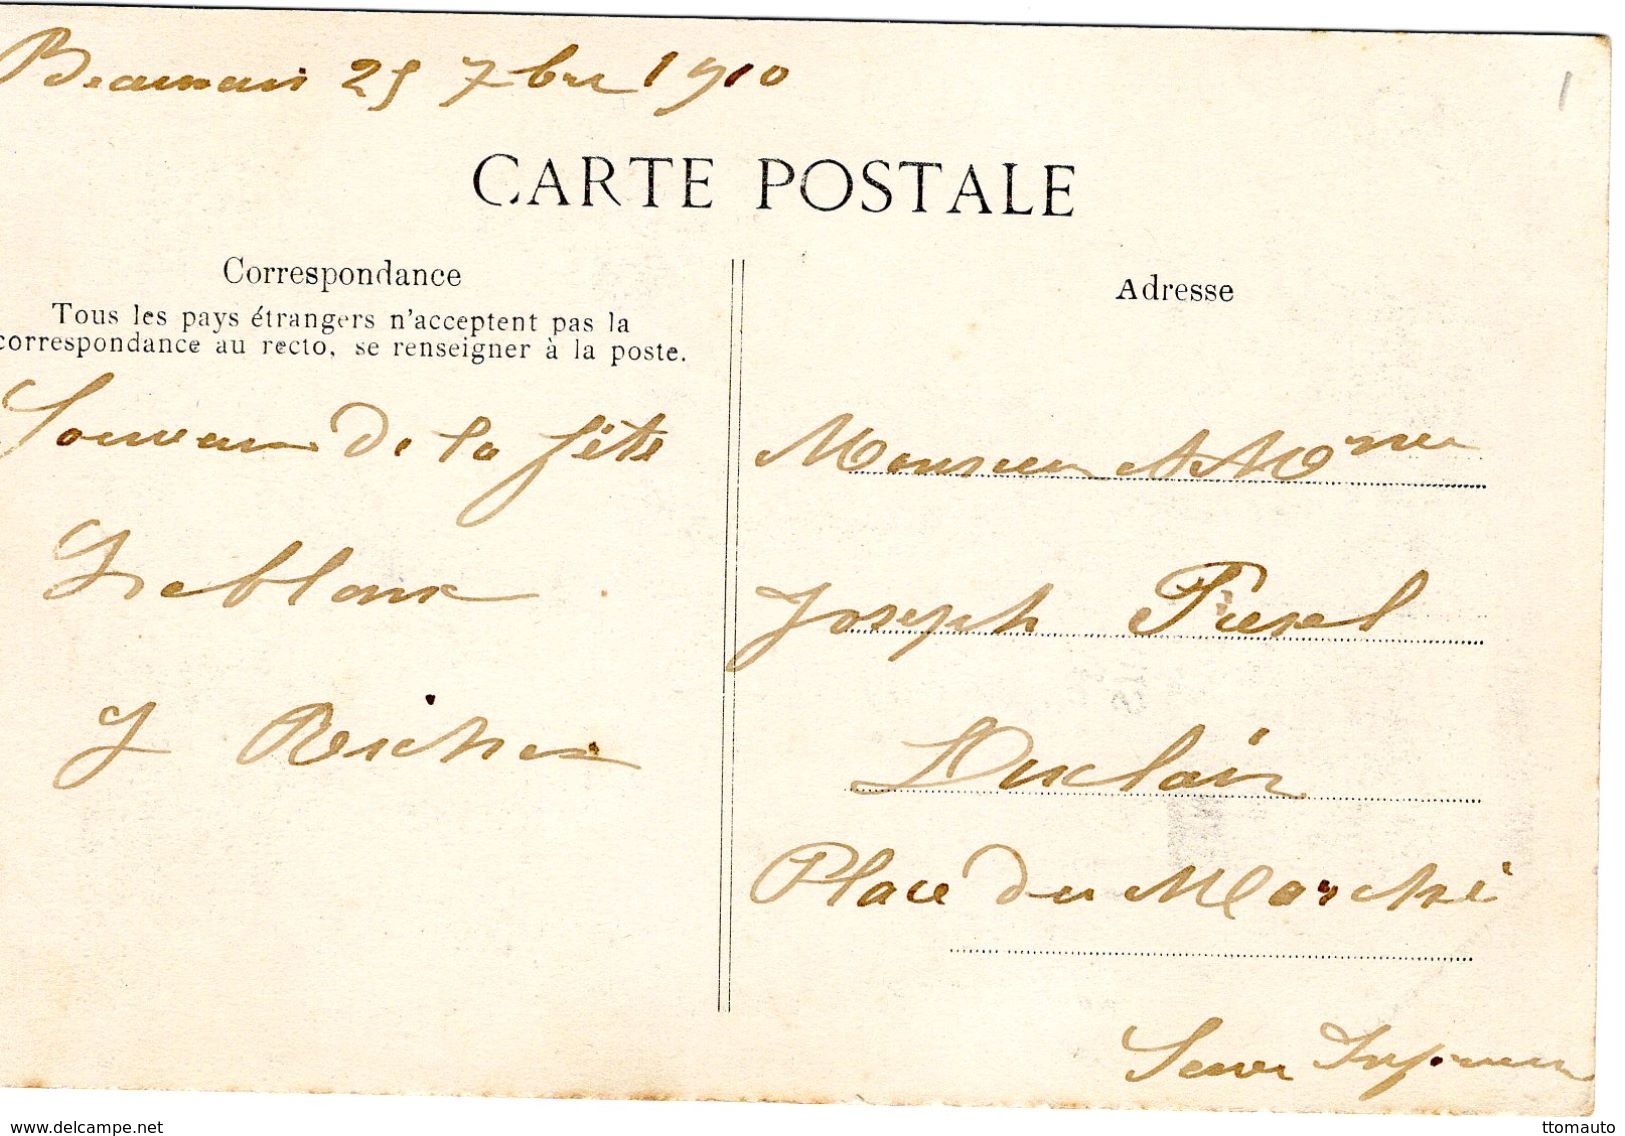 Beauvais 25 7bre 1910
1
CARTE POSTALE
Correspondance
Tous les pays étrangers n'acceptent pas la
correspondance au recto, se renseigner à la poste.
Souvenir de la fête
Leblanc
J
Adresse
Monsieur et Mme
Joseph
Duclair
Place du Marché
Seine Inférieure
www.delcampe.net
ttomauto